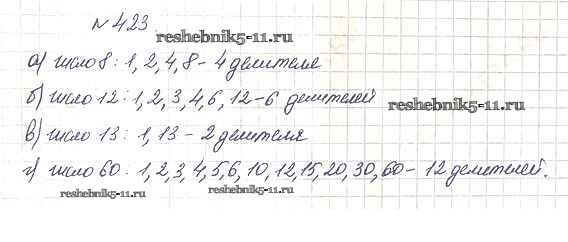 № 423
reshebnik5-11.ru
а) число 8 : 1, 2, 4, 8 – 4 делителя
б) число 12 : 1, 2, 3, 4, 6, 12 – 6 делителей
reshebnik5-11.ru
в) число 13 : 1, 13 – 2 делителя
г) число 60 : 1, 2, 3, 4, 5, 6, 10, 12, 15, 20, 30, 60 – 12 делителей.
reshebnik5-11.ru reshebnik5-11.ru